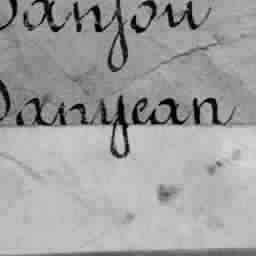 Danjou
Danyean